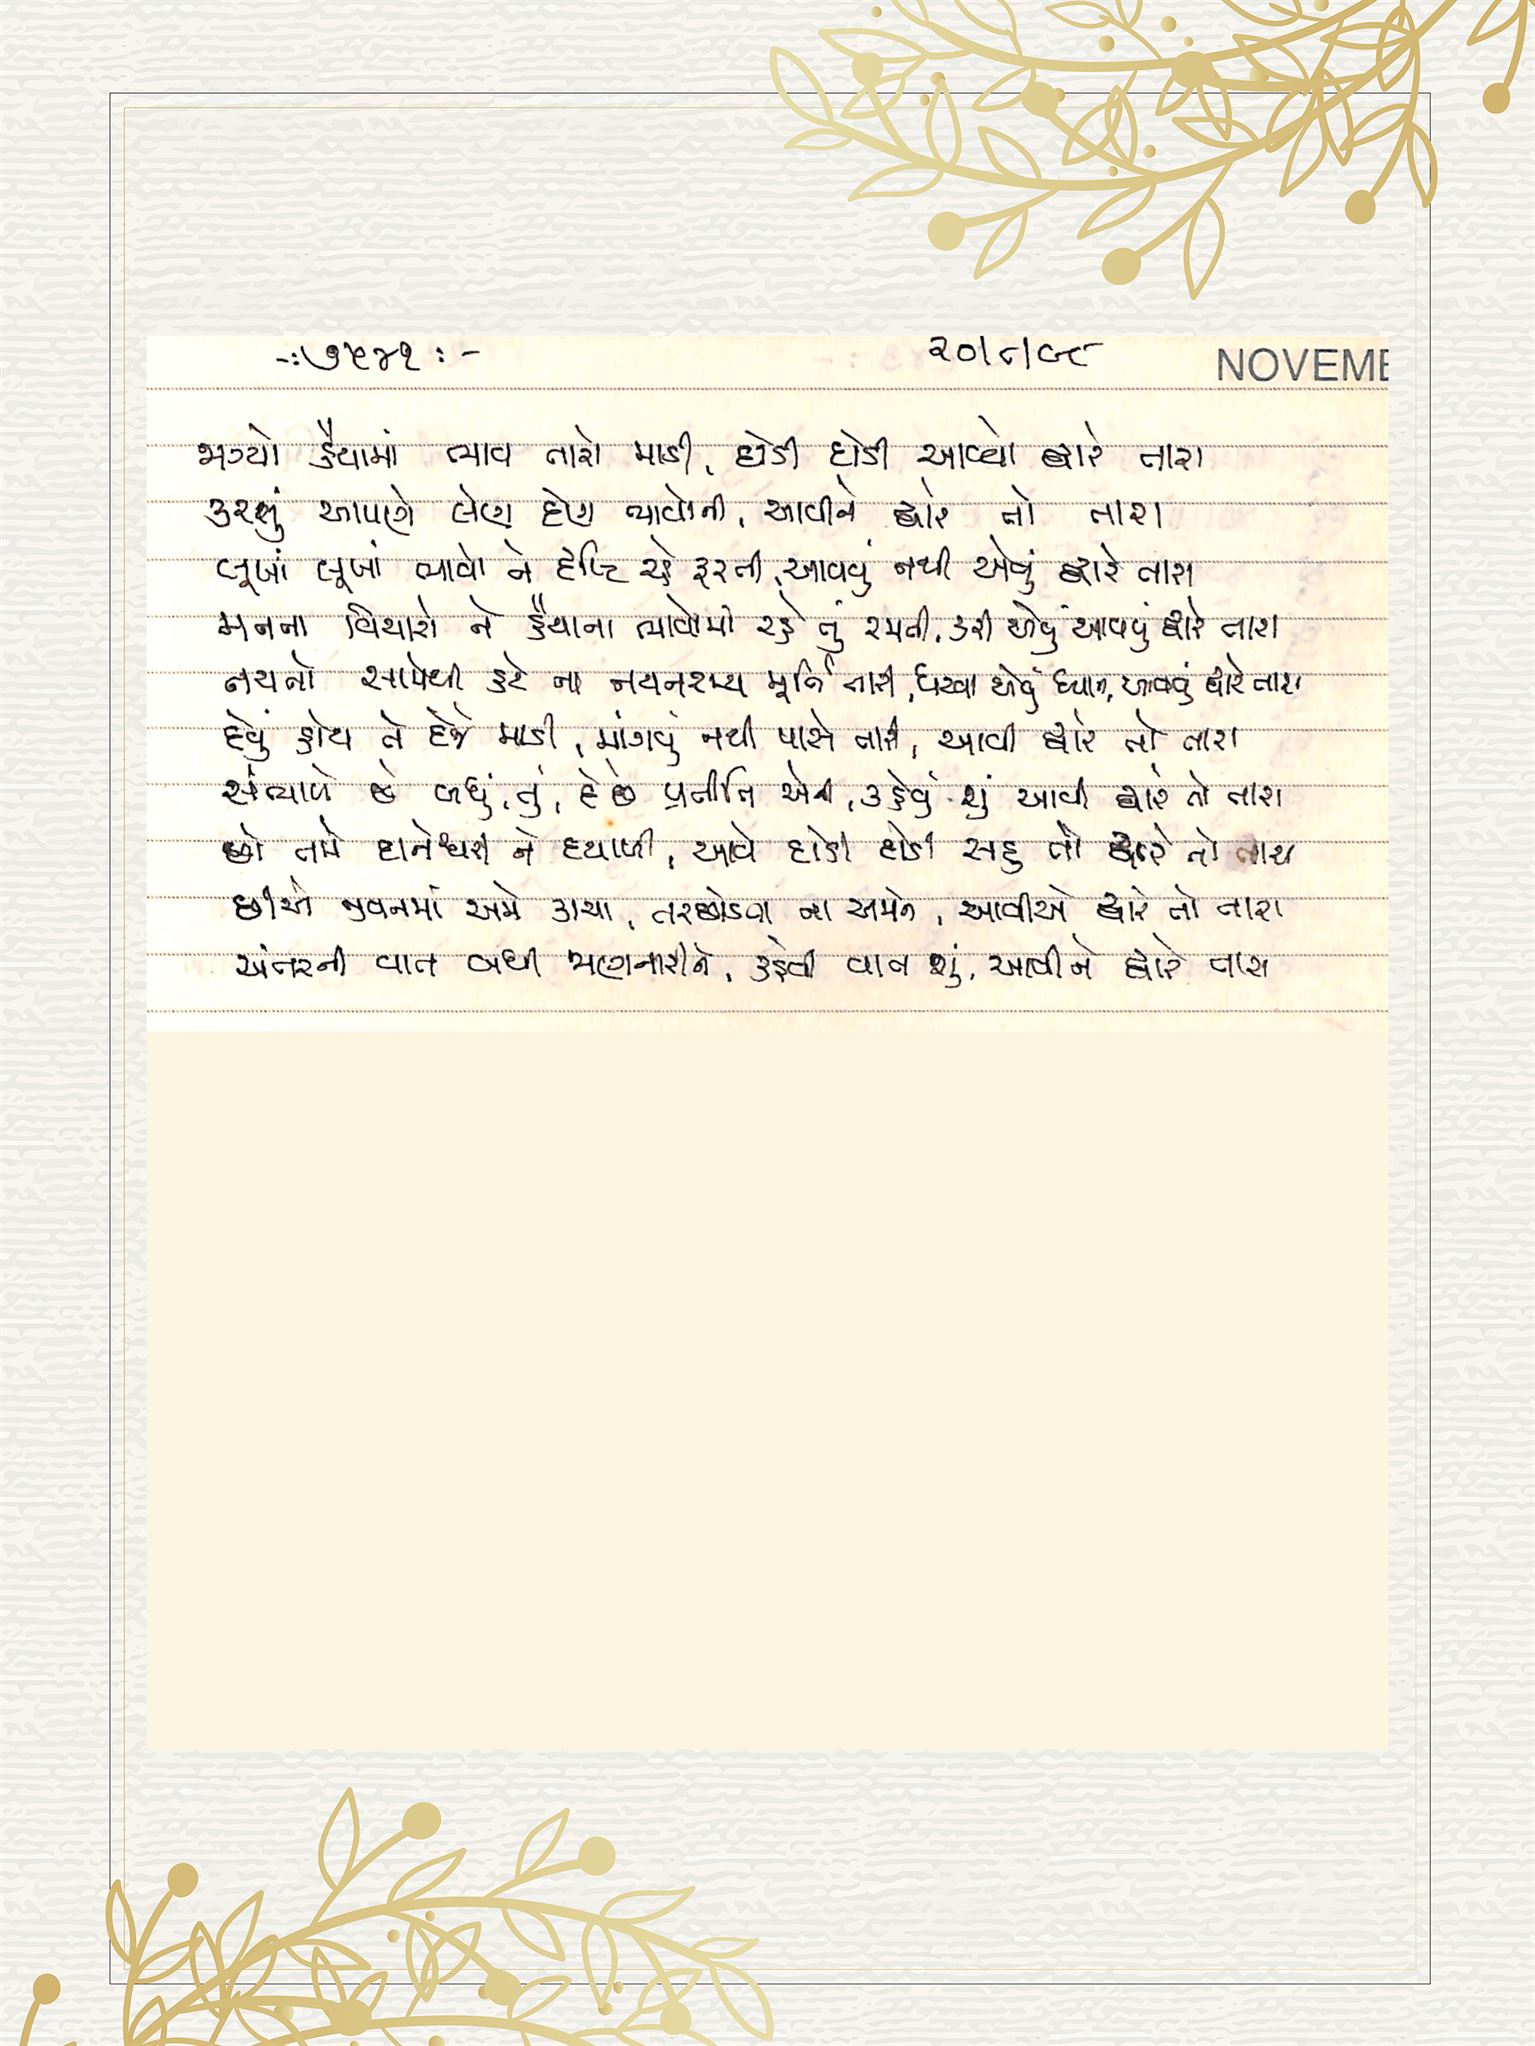 -: ૭૫૪૧ : - ૨૦/૮/૯૮ NOVEME
જાગ્યો હૈયામાં ભાવ તારો માડી, દોડી દોડી આવ્યો દ્વારે તારા
કરશું આપણે લેણ દેણ ભાવોની, આવીને દ્વારે તો તારા
લૂખાં લૂખાં ભાવો ને દૃષ્ટિ રહે ફરતી, આવવું નથી એવું દ્વારે તારા
મનના વિચારો ને હૈયાના ભાવોમાં રહે તું રમતી, કરી એવું આવવું દ્વારે તારા
નયનો સામેથી હટે ના નયનરમ્ય મૂર્તિ તારી, ધરવા એવું ધ્યાન, આવવું દ્વારે તારા
દેવું હોય તે દેજે માડી, માંગવું નથી પાસે તારી, આવી દ્વારે તો તારા
સંભાળે છે બધું, તું, દે છે પ્રતીતિ એની, કહેવું શું આવી દ્વારે તો તારા
છો તમે દાનેશ્વરી ને દયાળી, આવે દોડી દોડી સહુ તો દ્વારે તો તારા
છીએ જીવનમાં અમે કાચા, તરછોડતા ના અમને, આવીએ દ્વારે તો તારા
અંતરની વાત બધી જાણનારીને, કહેવી વાત શું, આવીને દ્વારે તારા